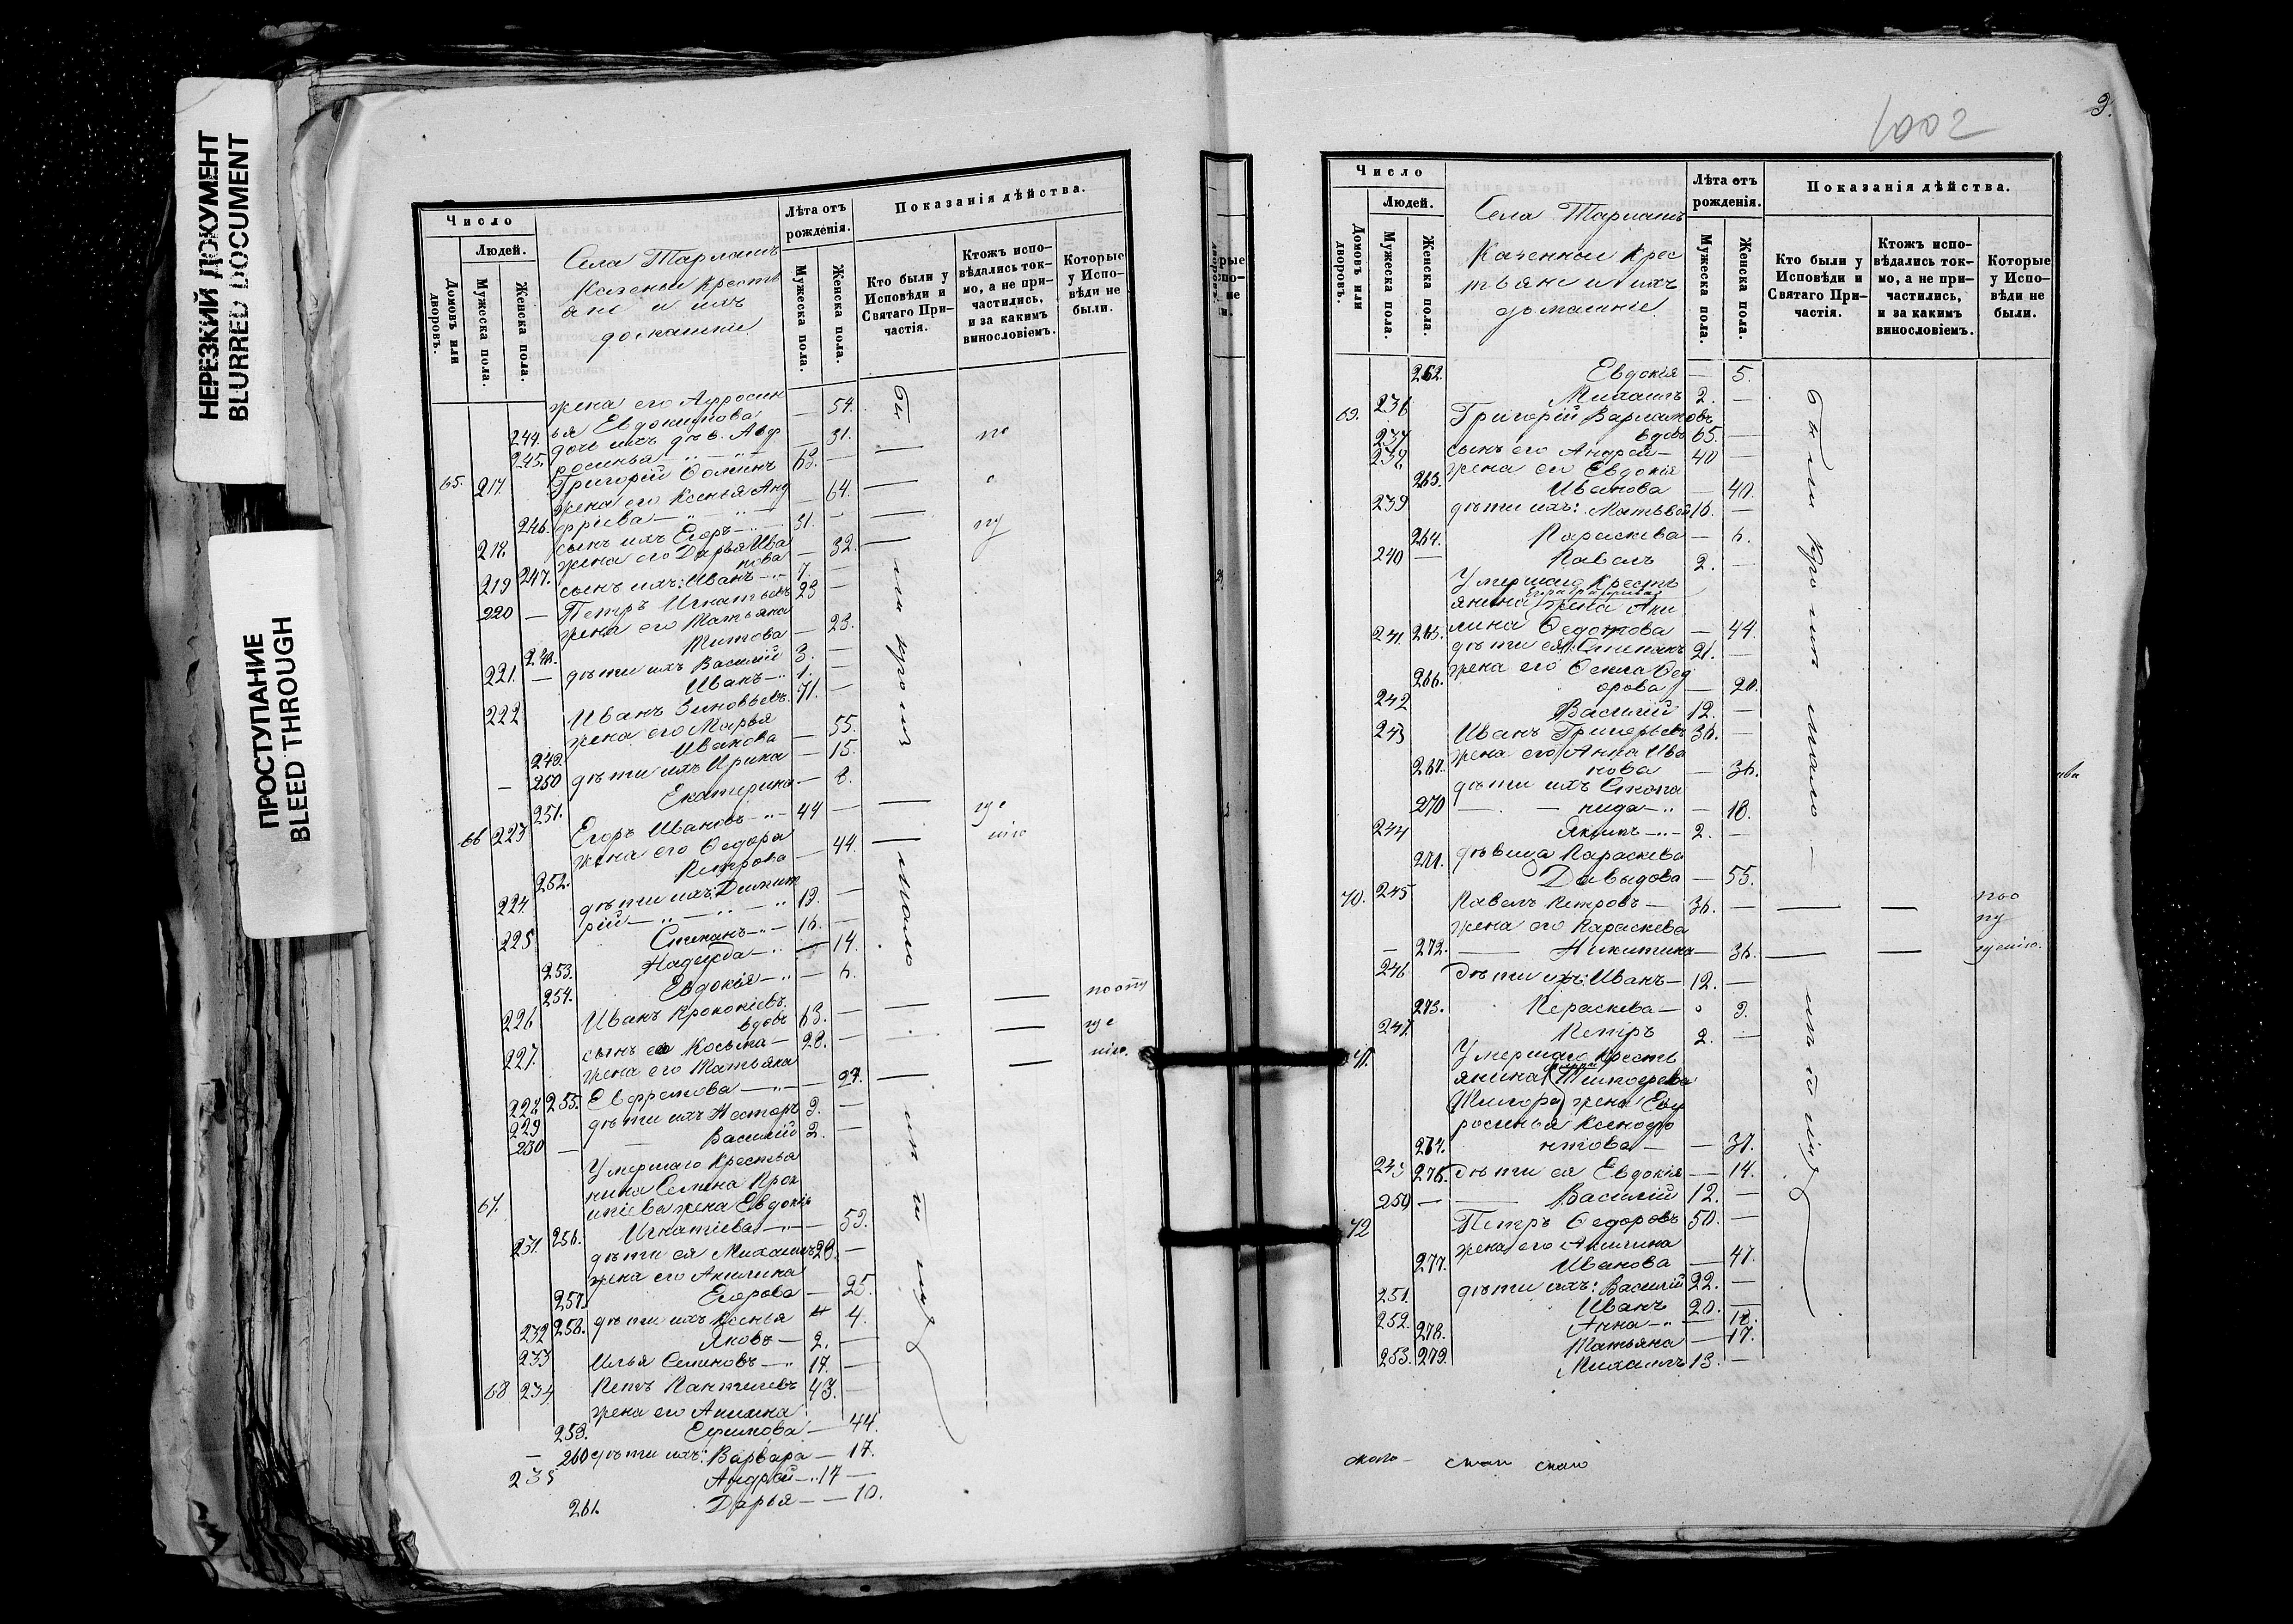 НЕРЕЗКИЙ ДОКУМЕНТ
BLURRED DOCUMENT
ПРОСТУПАНИЕ
BLEED THROUGH
Число
Людей.
Домовъ или дворовъ.
Мужеска пола.
Женска пола.
Села
Казенные кресть
яне и ихъ
домашніе
Лѣта отъ рожденія.
Мужеска пола.
Женска пола.
Показанія дѣйства.
Кто были у Исповѣди и Святаго Причастія.
Ктожъ исповѣдались токмо, а не причастились, и за какимъ винословіемъ.
Которые у Исповѣди не были.
жена его Афросин
244. ья Евдокимова — 54.
дочь ихъ дѣв. Авф
245. росинья — 31.
65. 217. Григорій Фоминъ 63. —
жена его Ксенья Анд
246. — 64.
218. сынъ ихъ Егоръ — 31. —
жена его Дарья Ива
247. нова — 32.
219 сынъ ихъ: Иванъ 7. —
220 — Петръ Игнатьевъ 23 —
жена его Татьяна
Титова — 23.
221. — дѣти ихъ Василій 3. —
Иванъ 1.
222 Иванъ Зиновьевъ 71. —
жена его Марья
249. Иванова — 55.
— 250 дѣти ихъ Ирина — 15.
251. Екатерина — 8.
66 223 Егоръ Ивановъ 44 —
жена его Федора
252. Петрова — 44.
224. дѣти ихъ: Димит
рій — 19. —
225 Степанъ 16. —
253. Надежда — 14.
254. Евдокія — 6.
226 Иванъ Прокопіевъ
вдовъ 63. —
227. сынъ его Косьма — 28. —
жена его Татьяна
255. Ефремова — 27.
229 дѣти ихъ Несторъ 3. —
230 — Василій 2. —
Умершаго крестья
нина Семена Прок
67. опіева жена Евдокія
231. 256. Игнатіева — 53.
дѣти ея Михаилъ 28. —
жена его Акилина
257. Егорова — 25.
232 258. дѣти ихъ Ксенья 4.
Яковъ — 2. —
233 Илья Семеновъ — 17. —
68 234 Петръ Пантелеевъ 43. —
жена его Акилина
259. Ефимова — 44.
— 260 дѣти ихъ: Варвара — 17.
235 Андрей — 17 —
261. Дарья — — 10.
были кромѣ мало лѣтнихъ
по опу
ще
нію.
1002
9.
Число
Людей.
Домовъ или дворовъ.
Мужеска пола.
Женска пола.
Села
Казенные крес
тьяне и ихъ
домашніе
Лѣта отъ рожденія.
Мужеска пола.
Женска пола.
Показанія дѣйства.
Кто были у Исповѣди и Святаго Причастія.
Ктожъ исповѣдались токмо, а не причастились, и за какимъ винословіемъ.
Которые у Исповѣди не были.
262. Евдокія — 5.
236 Михаилъ 2. —
69. Григорій Варламовъ
237 вдовъ 65. —
238 сынъ его Андрей — 40 —
жена его Евдокія
263. Иванова — 40.
239 дѣти ихъ: Матьвей 16. —
264. Параскева — 6.
240 — Павелъ 2. —
Умершаго кресть
янина жена Аки
241 265. лина Федотова — 44.
дѣти ея: Степанъ 21. —
жена его Фекла Фед
266. орова — 20.
242 Василій 12. —
243 Иванъ Григорьевъ 36. —
жена его Анна Ива
267. нова — 36.
дѣти ихъ Степа
270 — нида — 18.
244 Якимъ 2. —
271. дѣвица Параскева
Давыдова — 55.
70. 245 Павелъ Петровъ — 36. —
жена его Параскева
— 272. Никитина — 36.
246 дѣти ихъ: Иванъ — 12. —
273. Параскева — 9.
247 Петръ 2. —
71. Умершаго кресть
янина Тимофея
жена Евф
росинья Ксенофо
274. нтова — 37.
276. дѣти ея Евдокія — 14.
250 — Василій 12. —
72 Петръ Федоровъ 50. —
жена его Акилина
277. Иванова — 47.
251. дѣти ихъ: Василій 22. —
252. Иванъ 20. —
278. Анна — 18.
279. Татьяна — 17.
253. Михаилъ 13. —
были кромѣ мало — лѣтнихъ
по о
пу
щенію.